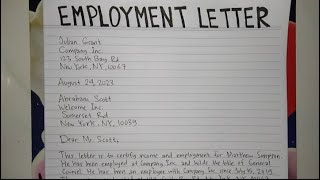 EMPLOYMENT LETTER
Julian Grant
Company Inc.
123 South Bay Rd
New York, NY, 10067
August 29, 2023
Abraham Scott
Welcome Inc.
Somerset Rd
New York, NY, 10039
Dear Mr. Scott,
This letter is to certify income and employment for Matthew Sampson
He has been employed at Company Inc. and holds the title of General
Counsel. He has been an employee with Company Inc since July 16, 2019